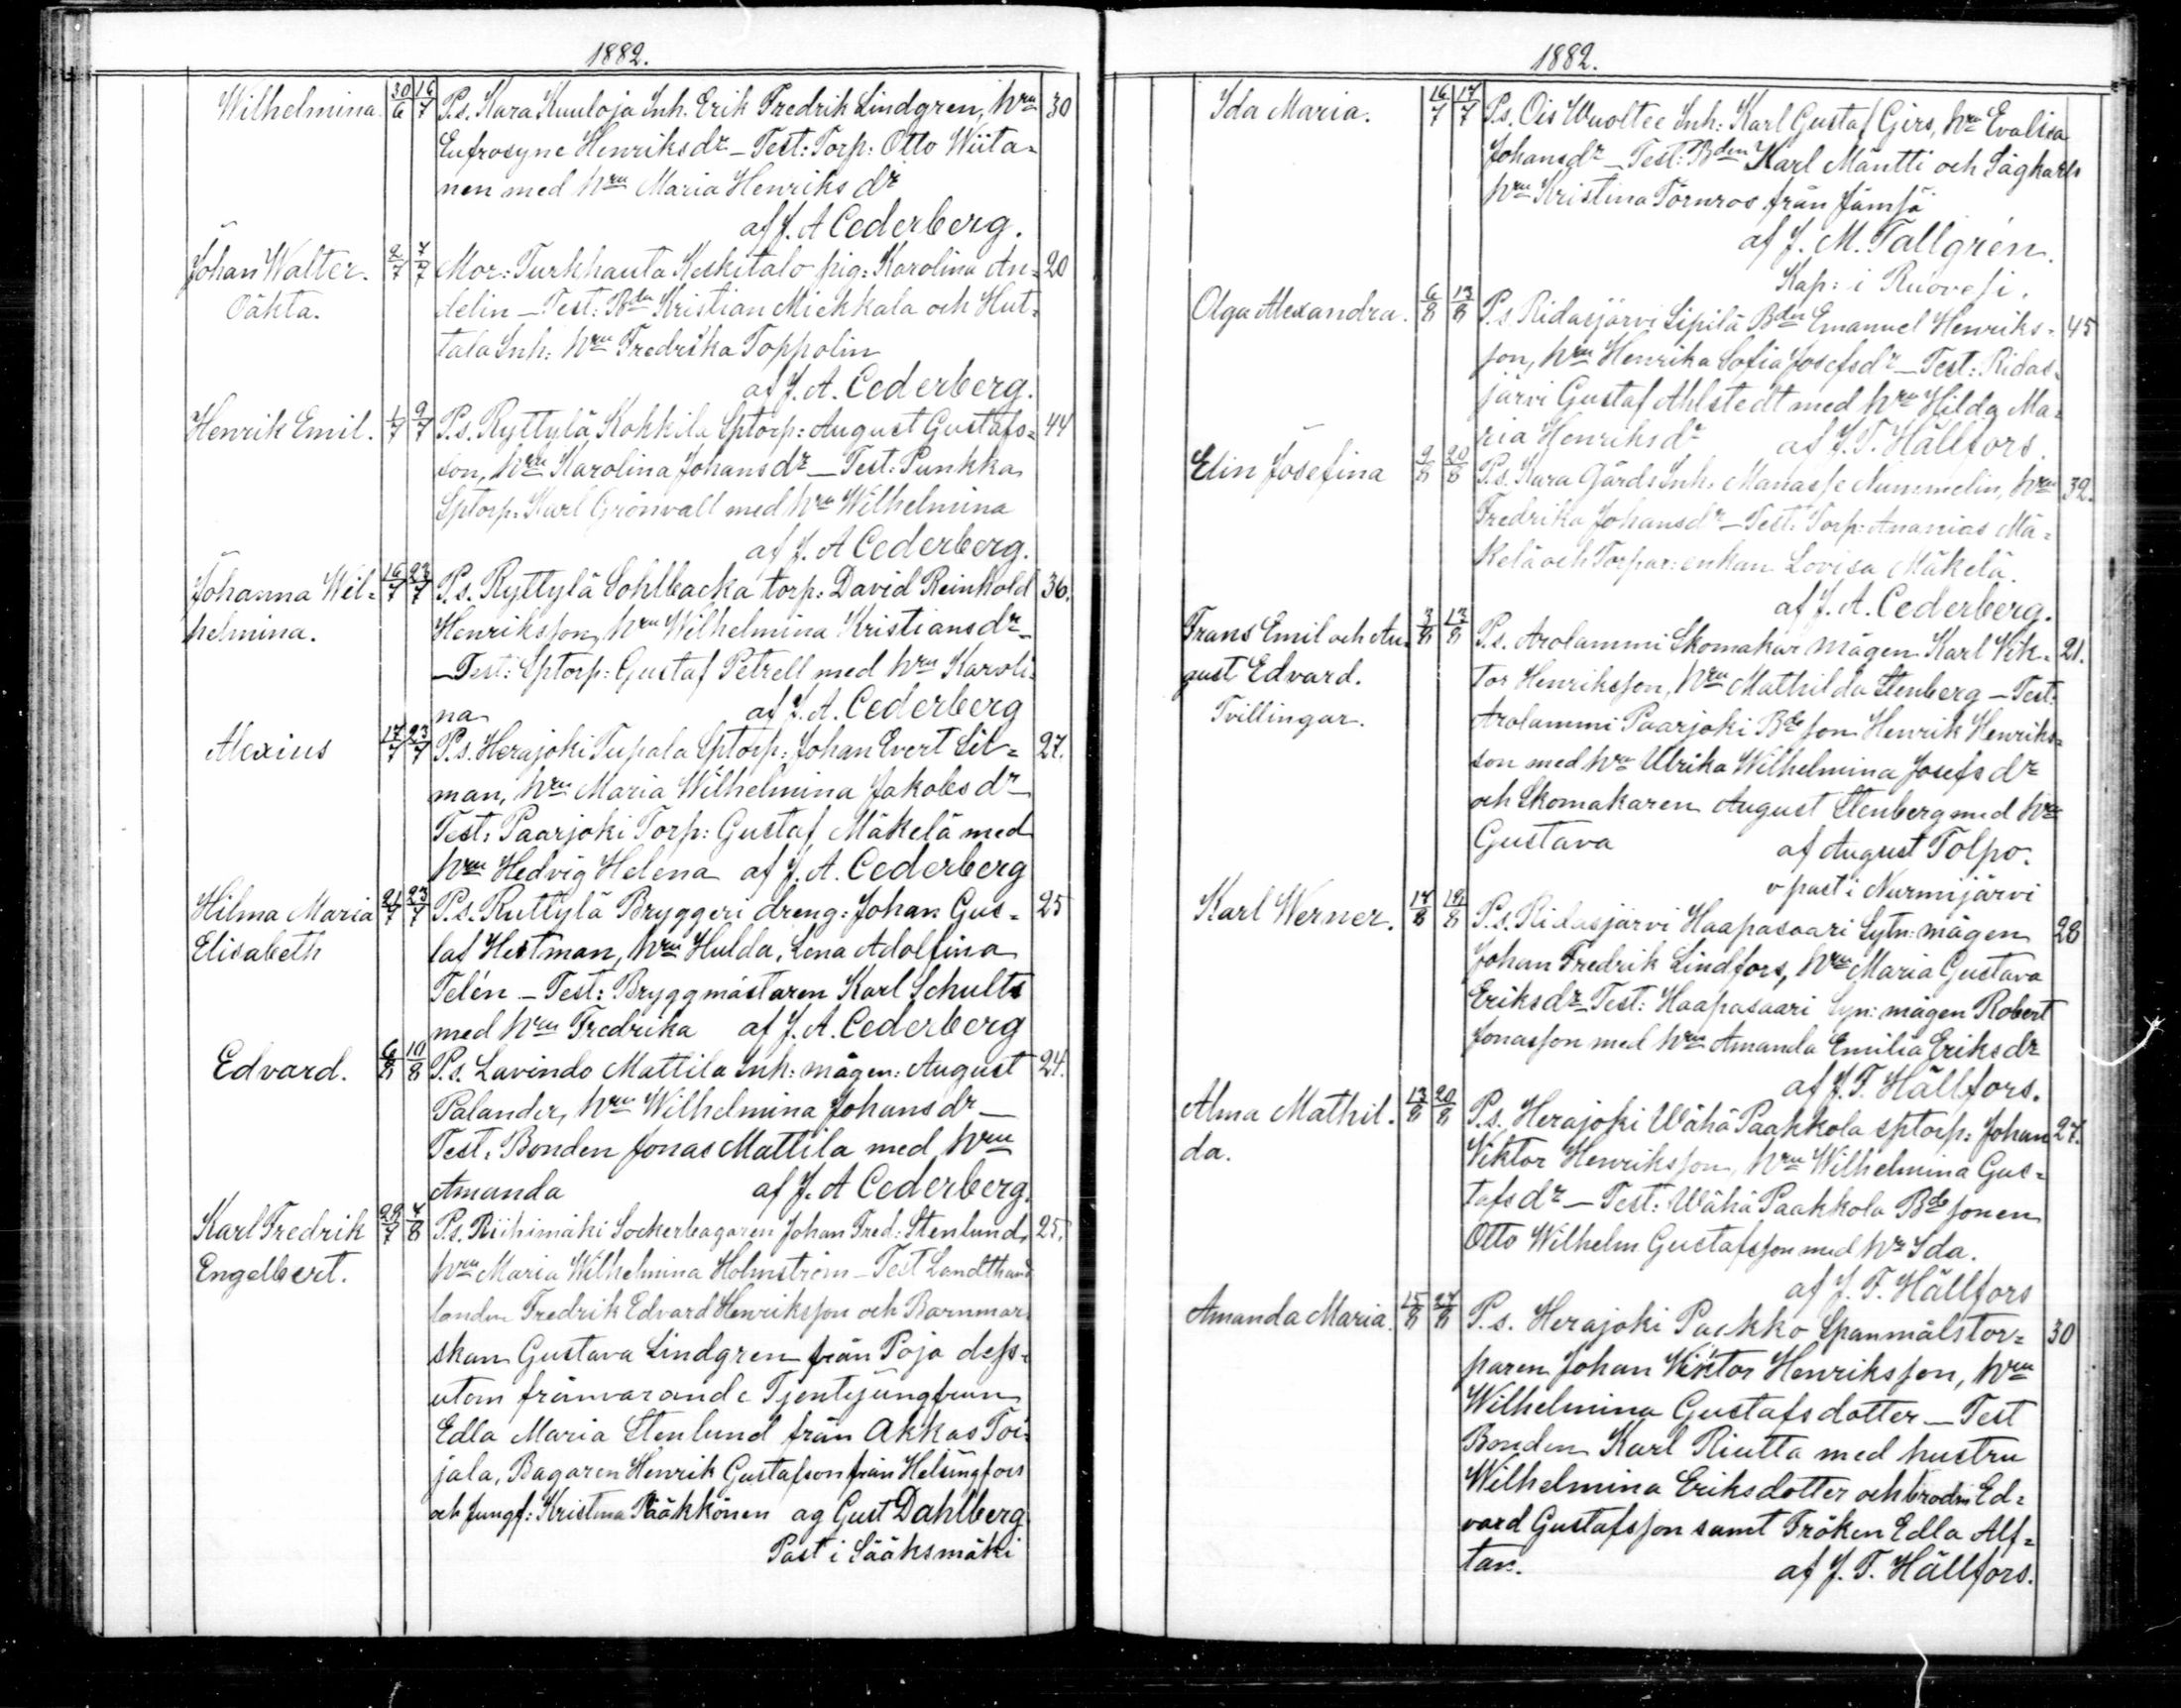 1882.
Wilhelmina 30/6 16/7 P.s. Kara Kuuloja Inh. Erik Fredrik Lindgren, hru 30
Eufrosyne Henriksdr – Test: Torp: Otto Wiita-
nen med hru Maria Henriks dr
af J. A Cederberg.
Johan Walter. 2/7 7/7 Mor: Turkhauta Keskitalo pig: Karolina An- 20
Oäkta. delin – Test: Bdn Kristian Mickkala och Hut-
tala Inh: hru Fredrika Toppolin
af J. A. Cederberg.
Henrik Emil. 1/7 9/7 P.s. Ryttylä Kokkila Sptorp: August Gustafs- 44
son, hru Karolina Johansdr – Test: Punkka
Sptorp: Karl Grönvall med hru Wilhelmina
af J. A Cederberg.
Johanna Wil- 16/7 23/7 P.s. Ryttylä Sohlbacka torp: David Reinhold 36.
helmina. Henriksson, hru Wilhelmina Kristiansdr –
– Test: Sptorp: Gustaf Petrell med hru Karoli-
na af J. A. Cederberg
Alexius 17/7 23/7 P.s. Herajoki Tupala Sptorp: Johan Evert Lit- 27.
man, hru Maria Wilhelmina Jakobs dr
Test: Paarjoki Torp: Gustaf Mäkelä med
hru Hedvig Helena af J. A. Cederberg
Hilma Maria 21/7 23/7 P.s. Ruttylä Bryggeri dreng: Johan Gus- 25
Elisabeth taf Hestman, hru Hulda, Lena Adolfina
Telén – Test: Bryggmästaren Karl Schults
med hru Fredrika af J. A. Cederberg
Edvard. 6/8 10/8 P.s. Lavindo Mattila Inh: mågen: August 24.
Palander, hru Wilhelmina Johansdr –
Test: Bonden Jonas Mattila med hru
Amanda af J. A Cederberg.
Karl Fredrik 29/7 4/8 P.s. Riihimäki Sockerbagaren Johan Fred: Stenlund, 25.
Engelbert. hru Maria Wilhelmina Holmström – Test Landthand
landen Fredrik Edvard Henriksson och Barnmor
skan Gustava Lindgren från Pojo dess-
utom frånvarande Tjentejungfrun
Edla Maria Stenlund från Akkas Toi-
jala, Bagaren Henrik Gustafson från Helsingfors
och Jungf: Kristina Pääkkönen ag Gust Dahlberg
Past i Sääksmäki
1882.
Ida Maria. 16/7 17/7 P.s. Ois Wuoltee Inh: Karl Gustaf Girs, hru Evalisa
Johansdr – Test: Bden Karl Mäntti och Sågkarls
hru Kristina Törnros från Jämsä
af J. M. Tallgrén.
Kap: i Ruovesi.
Olga Alexandra. 6/8 13/8 P.s Ridasjärvi Sipilä Bdn Emanuel Henriks- 45
son, hru Henrika Sofia Josefsdr – Test: Ridas-
järvi Gustaf Ahlstedt med hru Hilda Ma-
ria Henriksdr af J. F. Hällfors.
Elin Josefina 9/8 20/8 P.s. Kara Gårds Inh: Manasse Nummelin, hru 32.
Fredrika Johansdr – Test: Torp: Ananias Mä-
kelä och Torpar: enkan Lovisa Mäkelä.
af J. A. Cederberg.
Frans Emil och Au- 3/8 13/8 P.s. Arolammi Skomakar mågen Karl Vik- 21.
gust Edvard. tor Henriksson, hru Mathilda Stenberg – Test:
Tvillingar. Arolammi Paarjoki Bde son Henrik Henriks-
son med hru Ulrika Wilhelmina Josefs dr
och Skomakaren August Stenberg med hru
Gustava af August Tolpo.
v past i Nurmijärvi
Karl Werner. 14/8 19/8 P.s. Ridasjärvi Haapasaari Sytn: mågen 28
Johan Fredrik Lindfors, hru Maria Gustava
Eriksdr – Test: Haapasaari Syn: mågen Robert
Jonasson med hru Amanda Emilia Eriksdr
af J. F. Hällfors.
Alma Mathil- 13/8 20/8 P.s. Herajoki Wähä Paakkola sptorp: Johan 27.
da. Viktor Henriksson, hru Wilhelmina Gus-
tafsdr – Test: Wähä Paakkola Bde sonen
Otto Wilhelm Gustafsson med hr Ida.
af J. F. Hällfors
Amanda Maria. 15/8 27/8 P.s. Herajoki Packko Spanmålstor- 30
paren Johan Viktor Henriksson, hru
Wilhelmina Gustafsdotter – Test
Bonden Karl Riutta med hustru
Wilhelmina Eriksdotter och brodn Ed-
vard Gustafsson samt Fröken Edla Alf-
tan. af J. F. Hällfors.